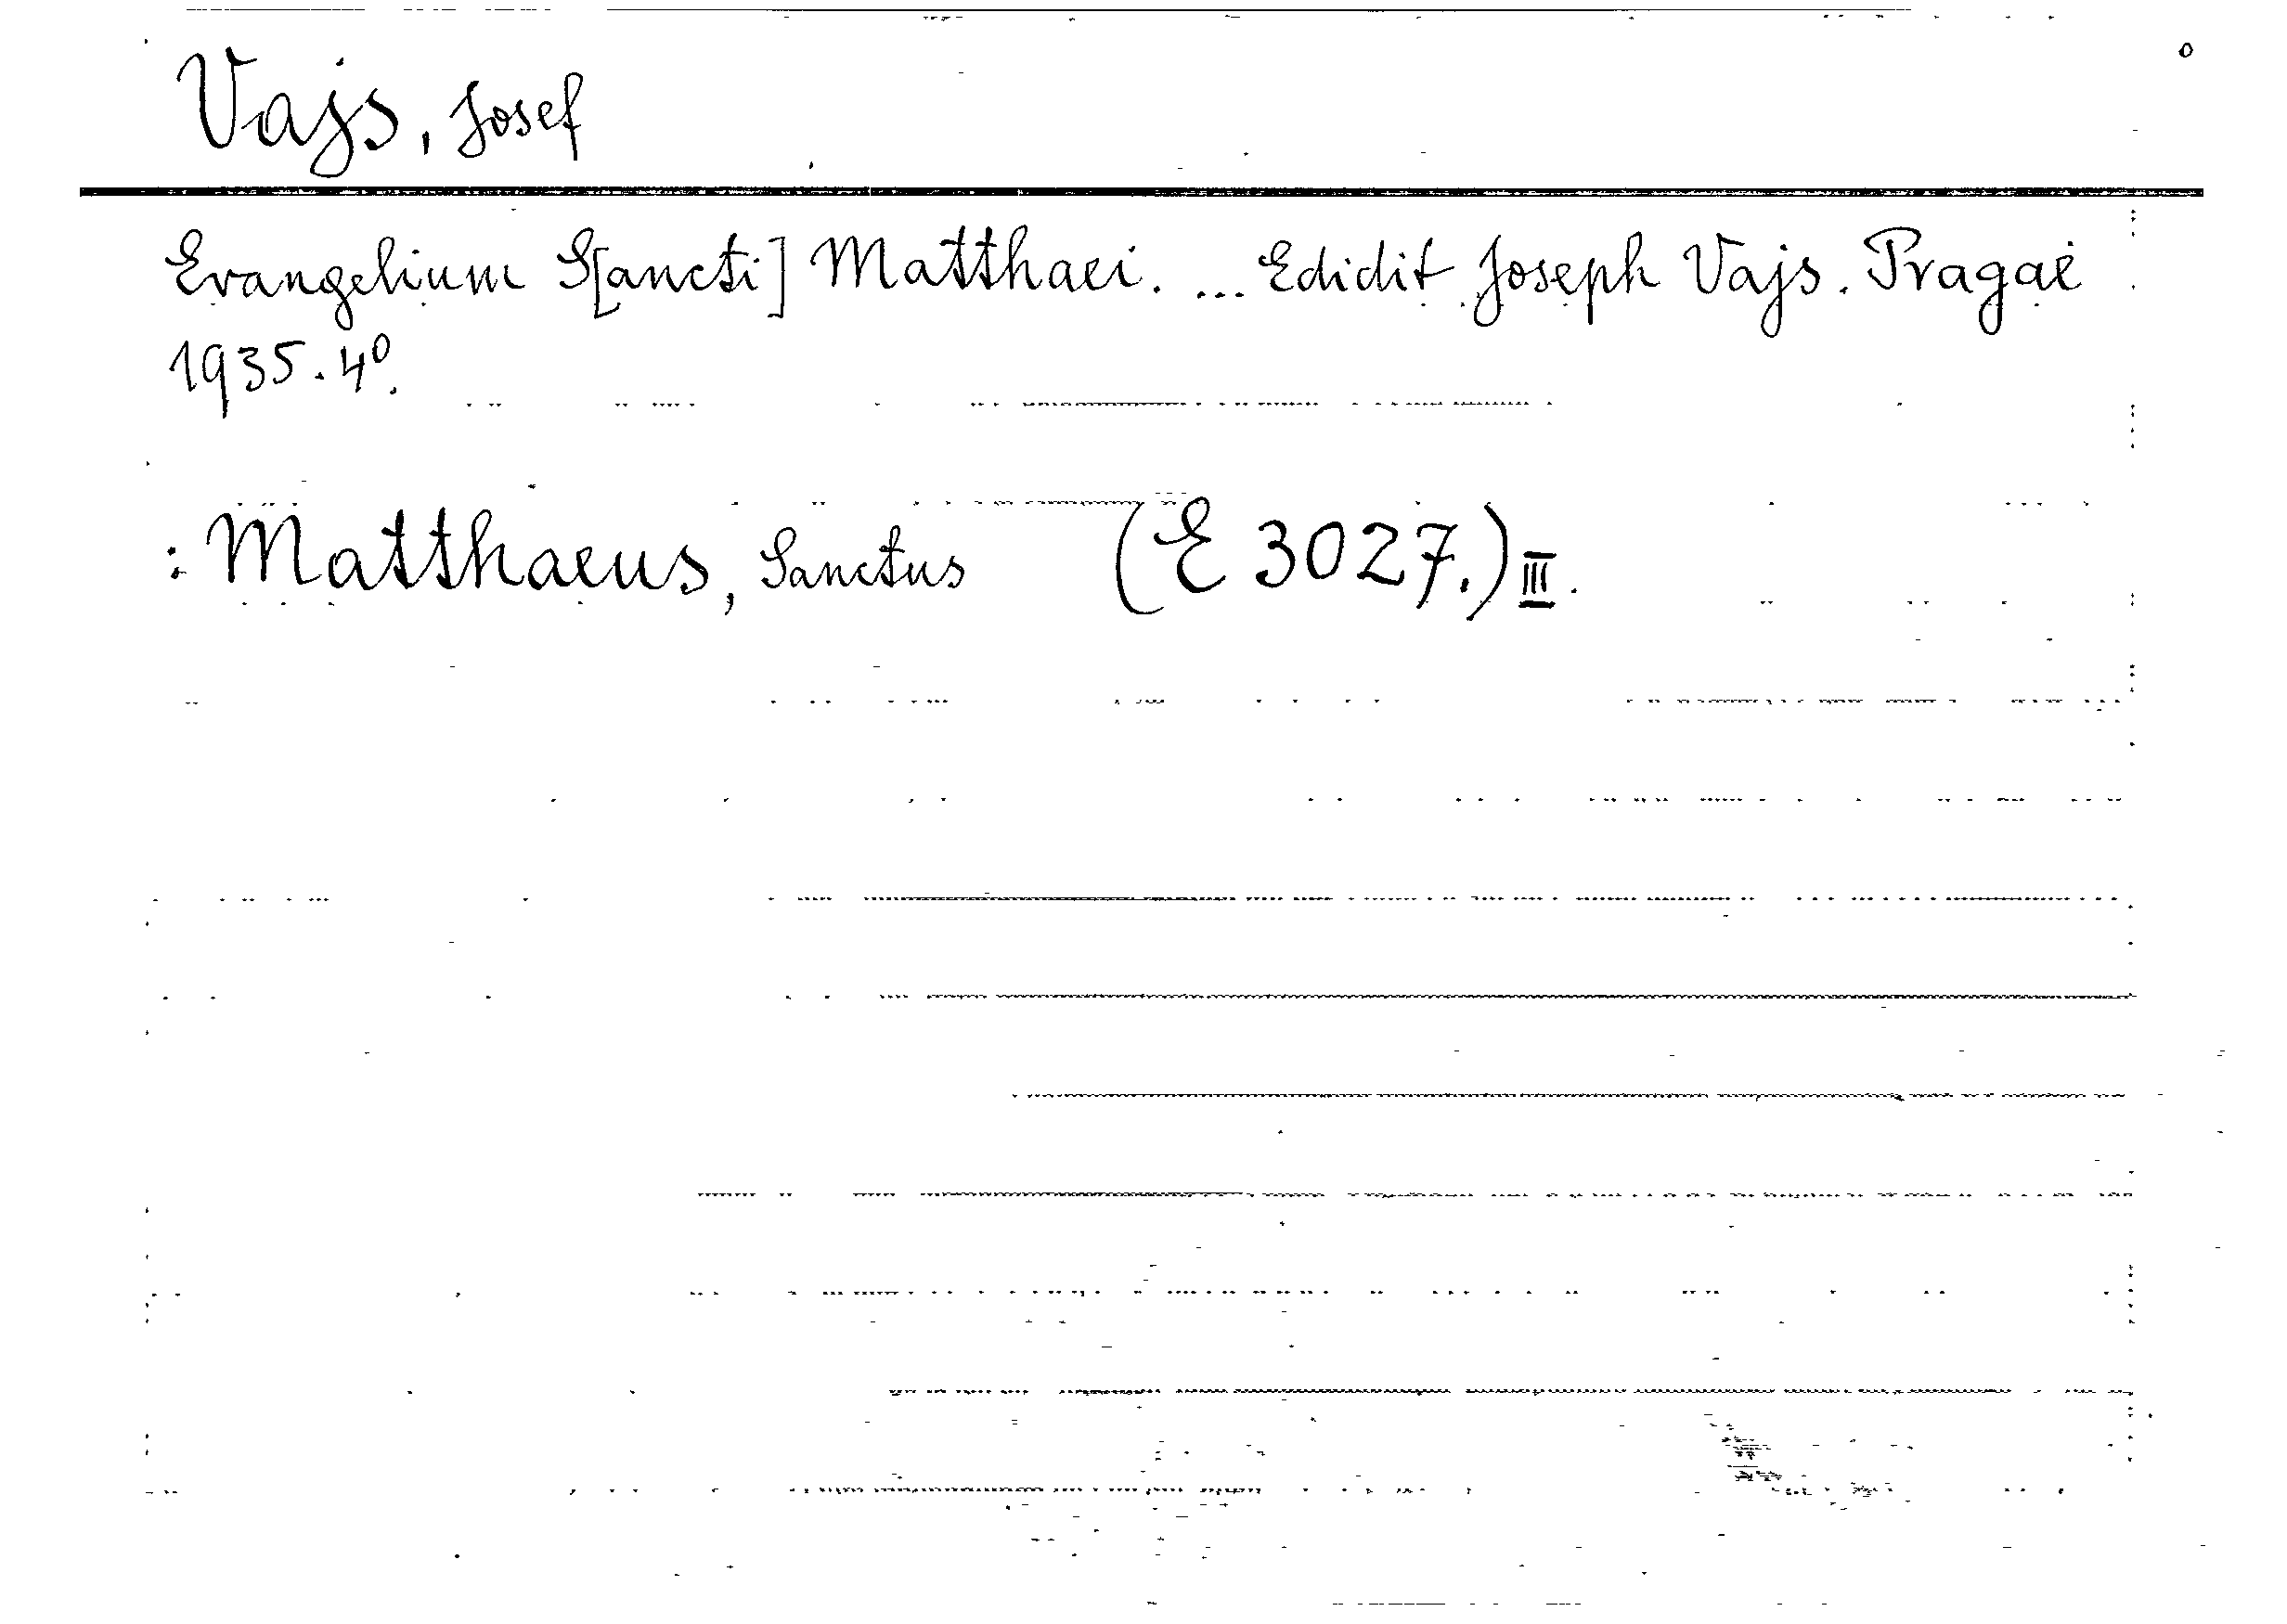 Vajs, Josef
Evangelium S[ancti] Matthaei. ... Edidit Joseph Vajs. Pragae
1935. 4⁰.
: Matthaeus, Sanctus (E 3027.) III.